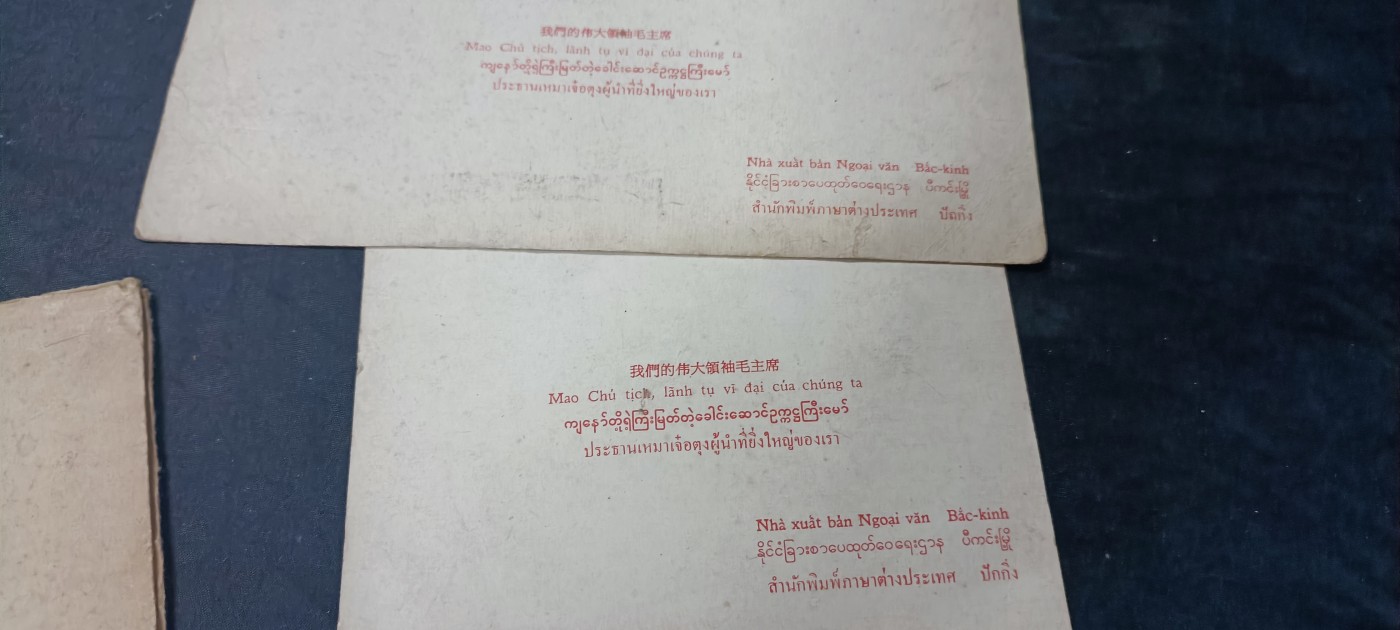 我們的伟大領袖毛主席
Mao Chủ tịch, lãnh tụ vĩ đại của chúng ta
ကျနော်တို့ရဲ့ကြီးမြတ်တဲ့ခေါင်းဆောင်ဥက္ကဋ္ဌကြီးမော်
ประธานเหมาเจ๋อตุงผู้นำที่ยิ่งใหญ่ของเรา
Nhà xuất bản Ngoại văn Bắc-kinh
နိုင်ငံခြားစာပေထုတ်ဝေရေးဌာန ပီကင်းမြို့
สำนักพิมพ์ภาษาต่างประเทศ ปักกิ่ง
我們的伟大領袖毛主席
Mao Chủ tịch, lãnh tụ vĩ đại của chúng ta
ကျနော်တို့ရဲ့ကြီးမြတ်တဲ့ခေါင်းဆောင်ဥက္ကဋ္ဌကြီးမော်
ประธานเหมาเจ๋อตุงผู้นำที่ยิ่งใหญ่ของเรา
Nhà xuất bản Ngoại văn Bắc-kinh
နိုင်ငံခြားစာပေထုတ်ဝေရေးဌာန ပီကင်းမြို့
สำนักพิมพ์ภาษาต่างประเทศ ปักกิ่ง